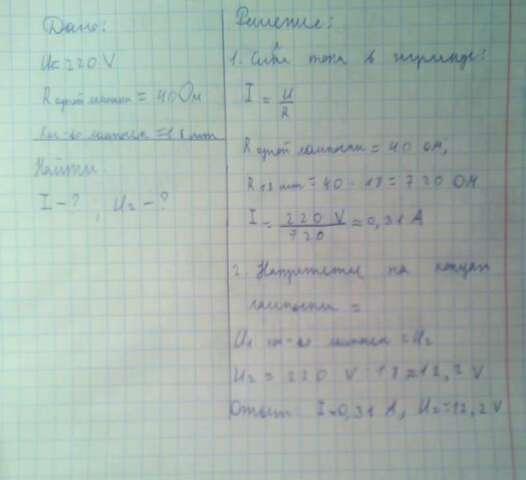 Дано:
U = 220 V
R одной лампы = 40 Ом
Кол-во лампочек = 18 шт
Найти:
I - ? , U₂ - ?
Решение:
1. Сила тока в гирлянде:
I = U/R
R одной лампочки = 40 Ом,
R 18 шт = 40 · 18 = 720 Ом
I = 220 V / 720 = 0,31 A
2. Напряжение на концах
лампочки =
U₁ кол-во лампочек = U₂
U₂ = 220 V : 18 ≈ 12,2 V
Ответ: I = 0,31 A, U₂ = 12,2 V